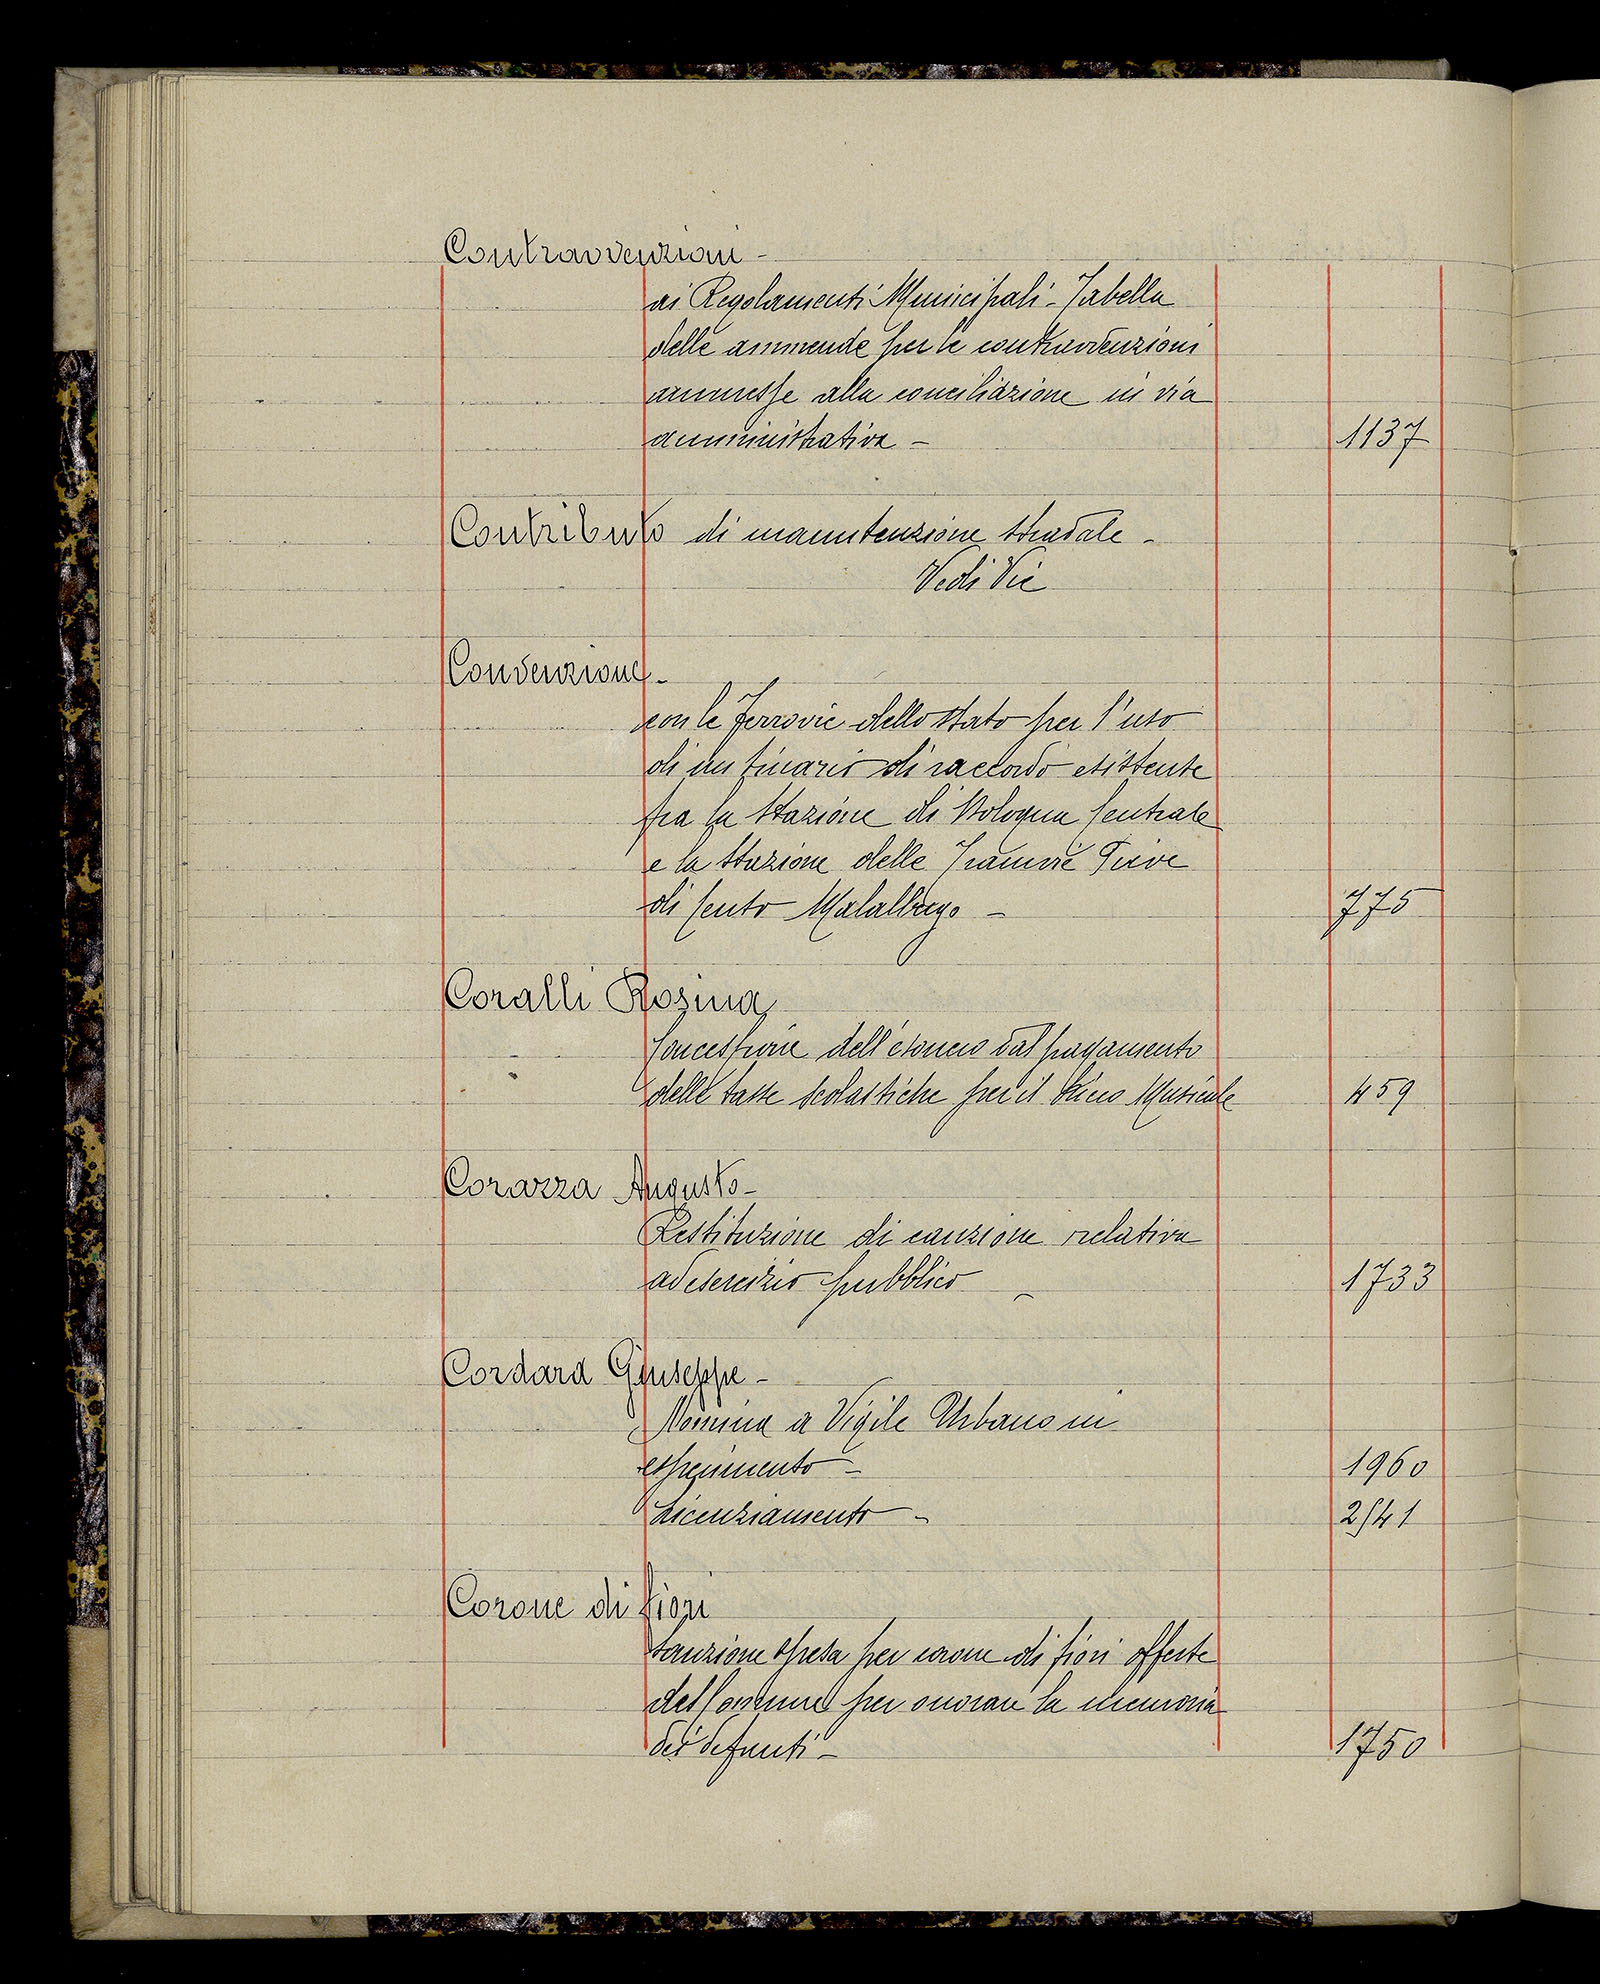 Contravvenzioni -
ai Regolamenti Municipali - Tabella
delle ammende per le contravvenzioni
ammesse alla conciliazione in via
amministrativa - 1137
Contributo di manutenzione stradale -
Vedi Vie
Convenzione -
con le Ferrovie dello Stato per l'uso
di un binario di raccordo esistente
fra la Stazione di Bologna Centrale
e la Stazione delle Tramvie Pieve
di Cento Malalbergo - 775
Coralli Rosina
Concessione dell'esonero dal pagamento
delle tasse scolastiche per il Liceo Musicale 459
Corazza Augusto -
Restituzione di cauzione relativa
ad esercizio pubblico - 1733
Cordara Giuseppe -
Nomina a Vigile Urbano in
esperimento - 1960
Licenziamento - 2141
Corone di fiori
Sanzione spesa per corone di fiori offerte
dal Comune per onorare la memoria
dei defunti - 1750